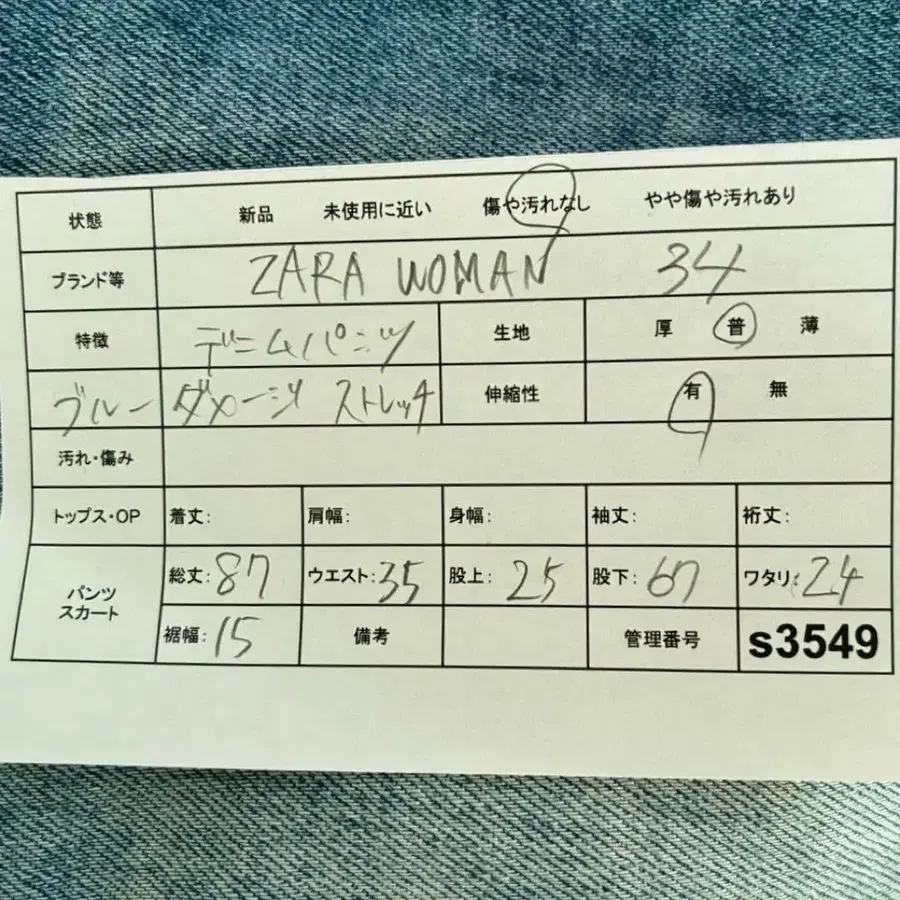 状態 新品 未使用に近い 傷や汚れなし やや傷や汚れあり
ブランド等 ZARA WOMAN 34
特徴 デニムパンツ 生地 厚 普 薄
ブルー ダメージ ストレッチ 伸縮性 有 無
汚れ・傷み
トップス・OP 着丈: 肩幅: 身幅: 袖丈: 裄丈:
パンツ スカート 総丈: 87 ウエスト: 35 股上: 25 股下: 67 ワタリ: 24
裾幅: 15 備考 管理番号 s3549